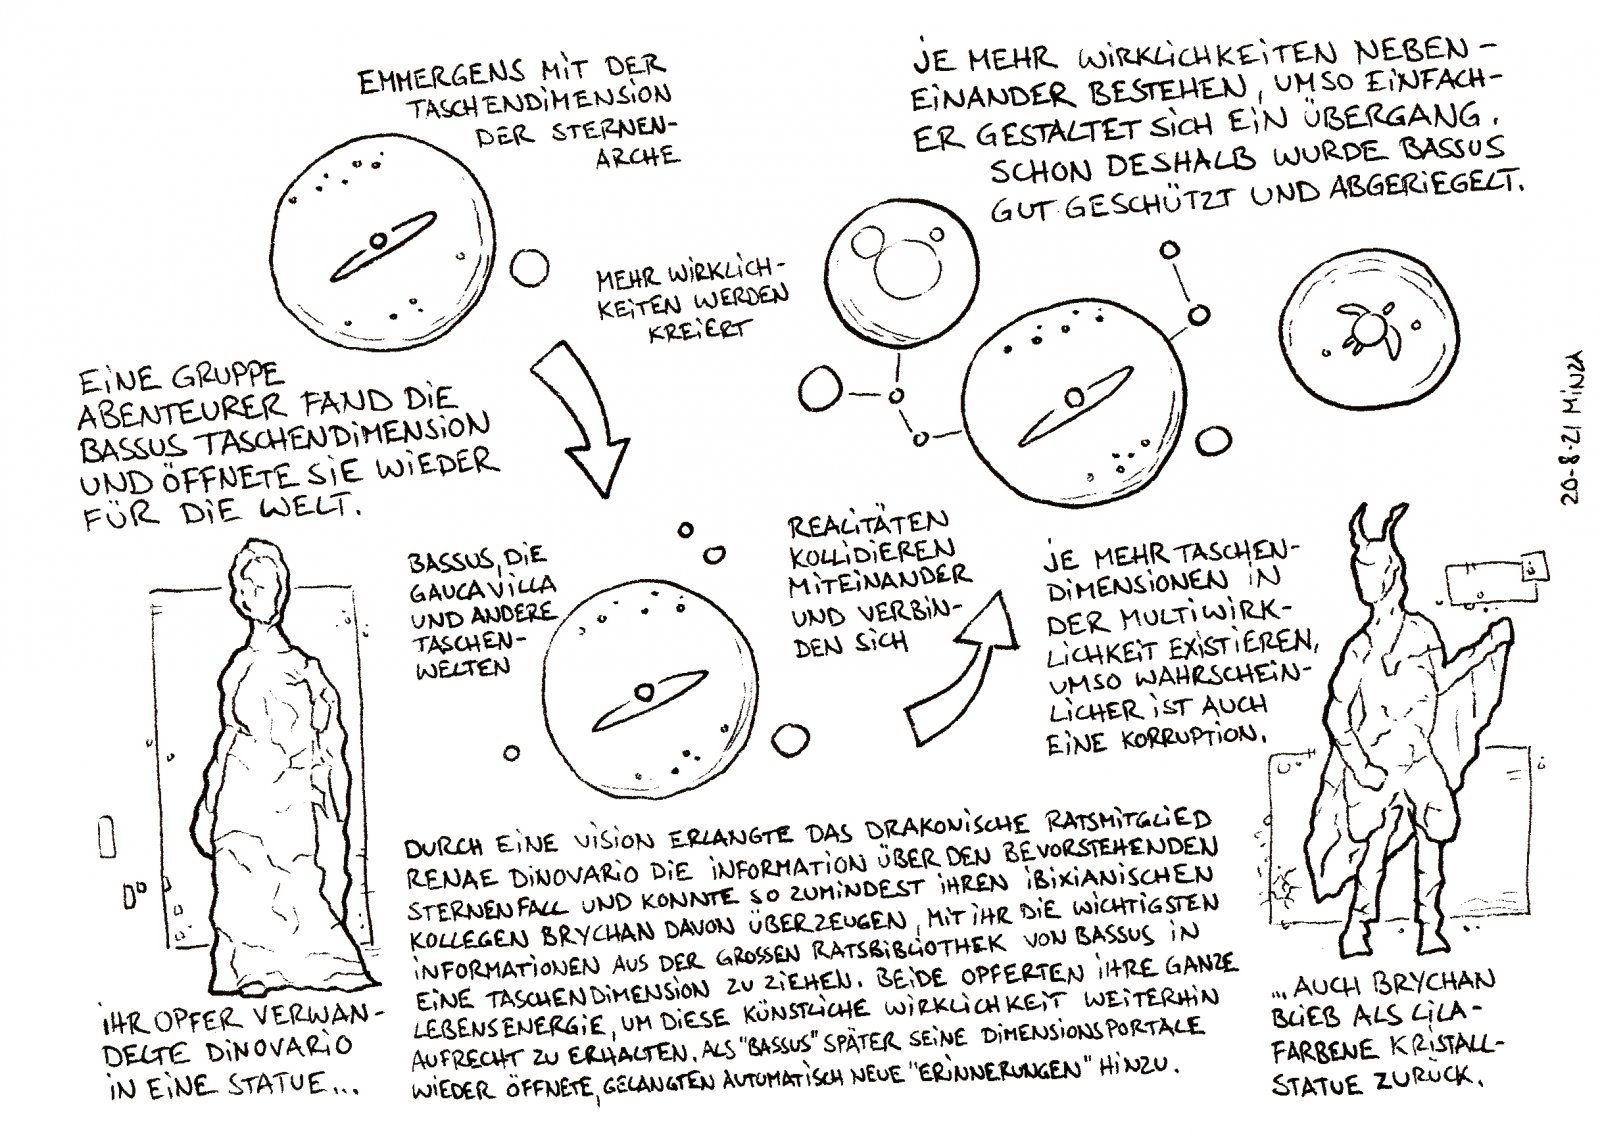 EMMERGENS MIT DER
TASCHENDIMENSION
DER STERNEN-
ARCHE
JE MEHR WIRKLICHKEITEN NEBEN-
EINANDER BESTEHEN, UMSO EINFACH-
ER GESTALTET SICH EIN ÜBERGANG.
SCHON DESHALB WURDE BASSUS
GUT GESCHÜTZT UND ABGERIEGELT.
MEHR WIRKLICH-
KEITEN WERDEN
KREIERT
EINE GRUPPE
ABENTEURER FAND DIE
BASSUS TASCHENDIMENSION
UND ÖFFNETE SIE WIEDER
FÜR DIE WELT.
BASSUS, DIE
GAUCAVILLA
UND ANDERE
TASCHEN-
WELTEN
REALITÄTEN
KOLLIDIEREN
MITEINANDER
UND VERBIN-
DEN SICH
JE MEHR TASCHEN-
DIMENSIONEN IN
DER MULTIWIRK-
LICHKEIT EXISTIEREN,
UMSO WAHRSCHEIN-
LICHER IST AUCH
EINE KORRUPTION.
20-8-21 MINZA
DURCH EINE VISION ERLANGTE DAS DRAKONISCHE RATSMITGLIED
RENAE DINOVARIO DIE INFORMATION ÜBER DEN BEVORSTEHENDEN
STERNENFALL UND KONNTE SO ZUMINDEST IHREN IBIXIANISCHEN
KOLLEGEN BRYCHAN DAVON ÜBERZEUGEN, MIT IHR DIE WICHTIGSTEN
INFORMATIONEN AUS DER GROSSEN RATSBIBLIOTHEK VON BASSUS IN
EINE TASCHENDIMENSION ZU ZIEHEN. BEIDE OPFERTEN IHRE GANZE
LEBENSENERGIE, UM DIESE KÜNSTLICHE WIRKLICHKEIT WEITERHIN
AUFRECHT ZU ERHALTEN. ALS "BASSUS" SPÄTER SEINE DIMENSIONSPORTALE
WIEDER ÖFFNETE, GELANGTEN AUTOMATISCH NEUE "ERINNERUNGEN" HINZU.
IHR OPFER VERWAN-
DELTE DINOVARIO
IN EINE STATUE...
...AUCH BRYCHAN
BLIEB ALS LILA-
FARBENE KRISTALL-
STATUE ZURÜCK.